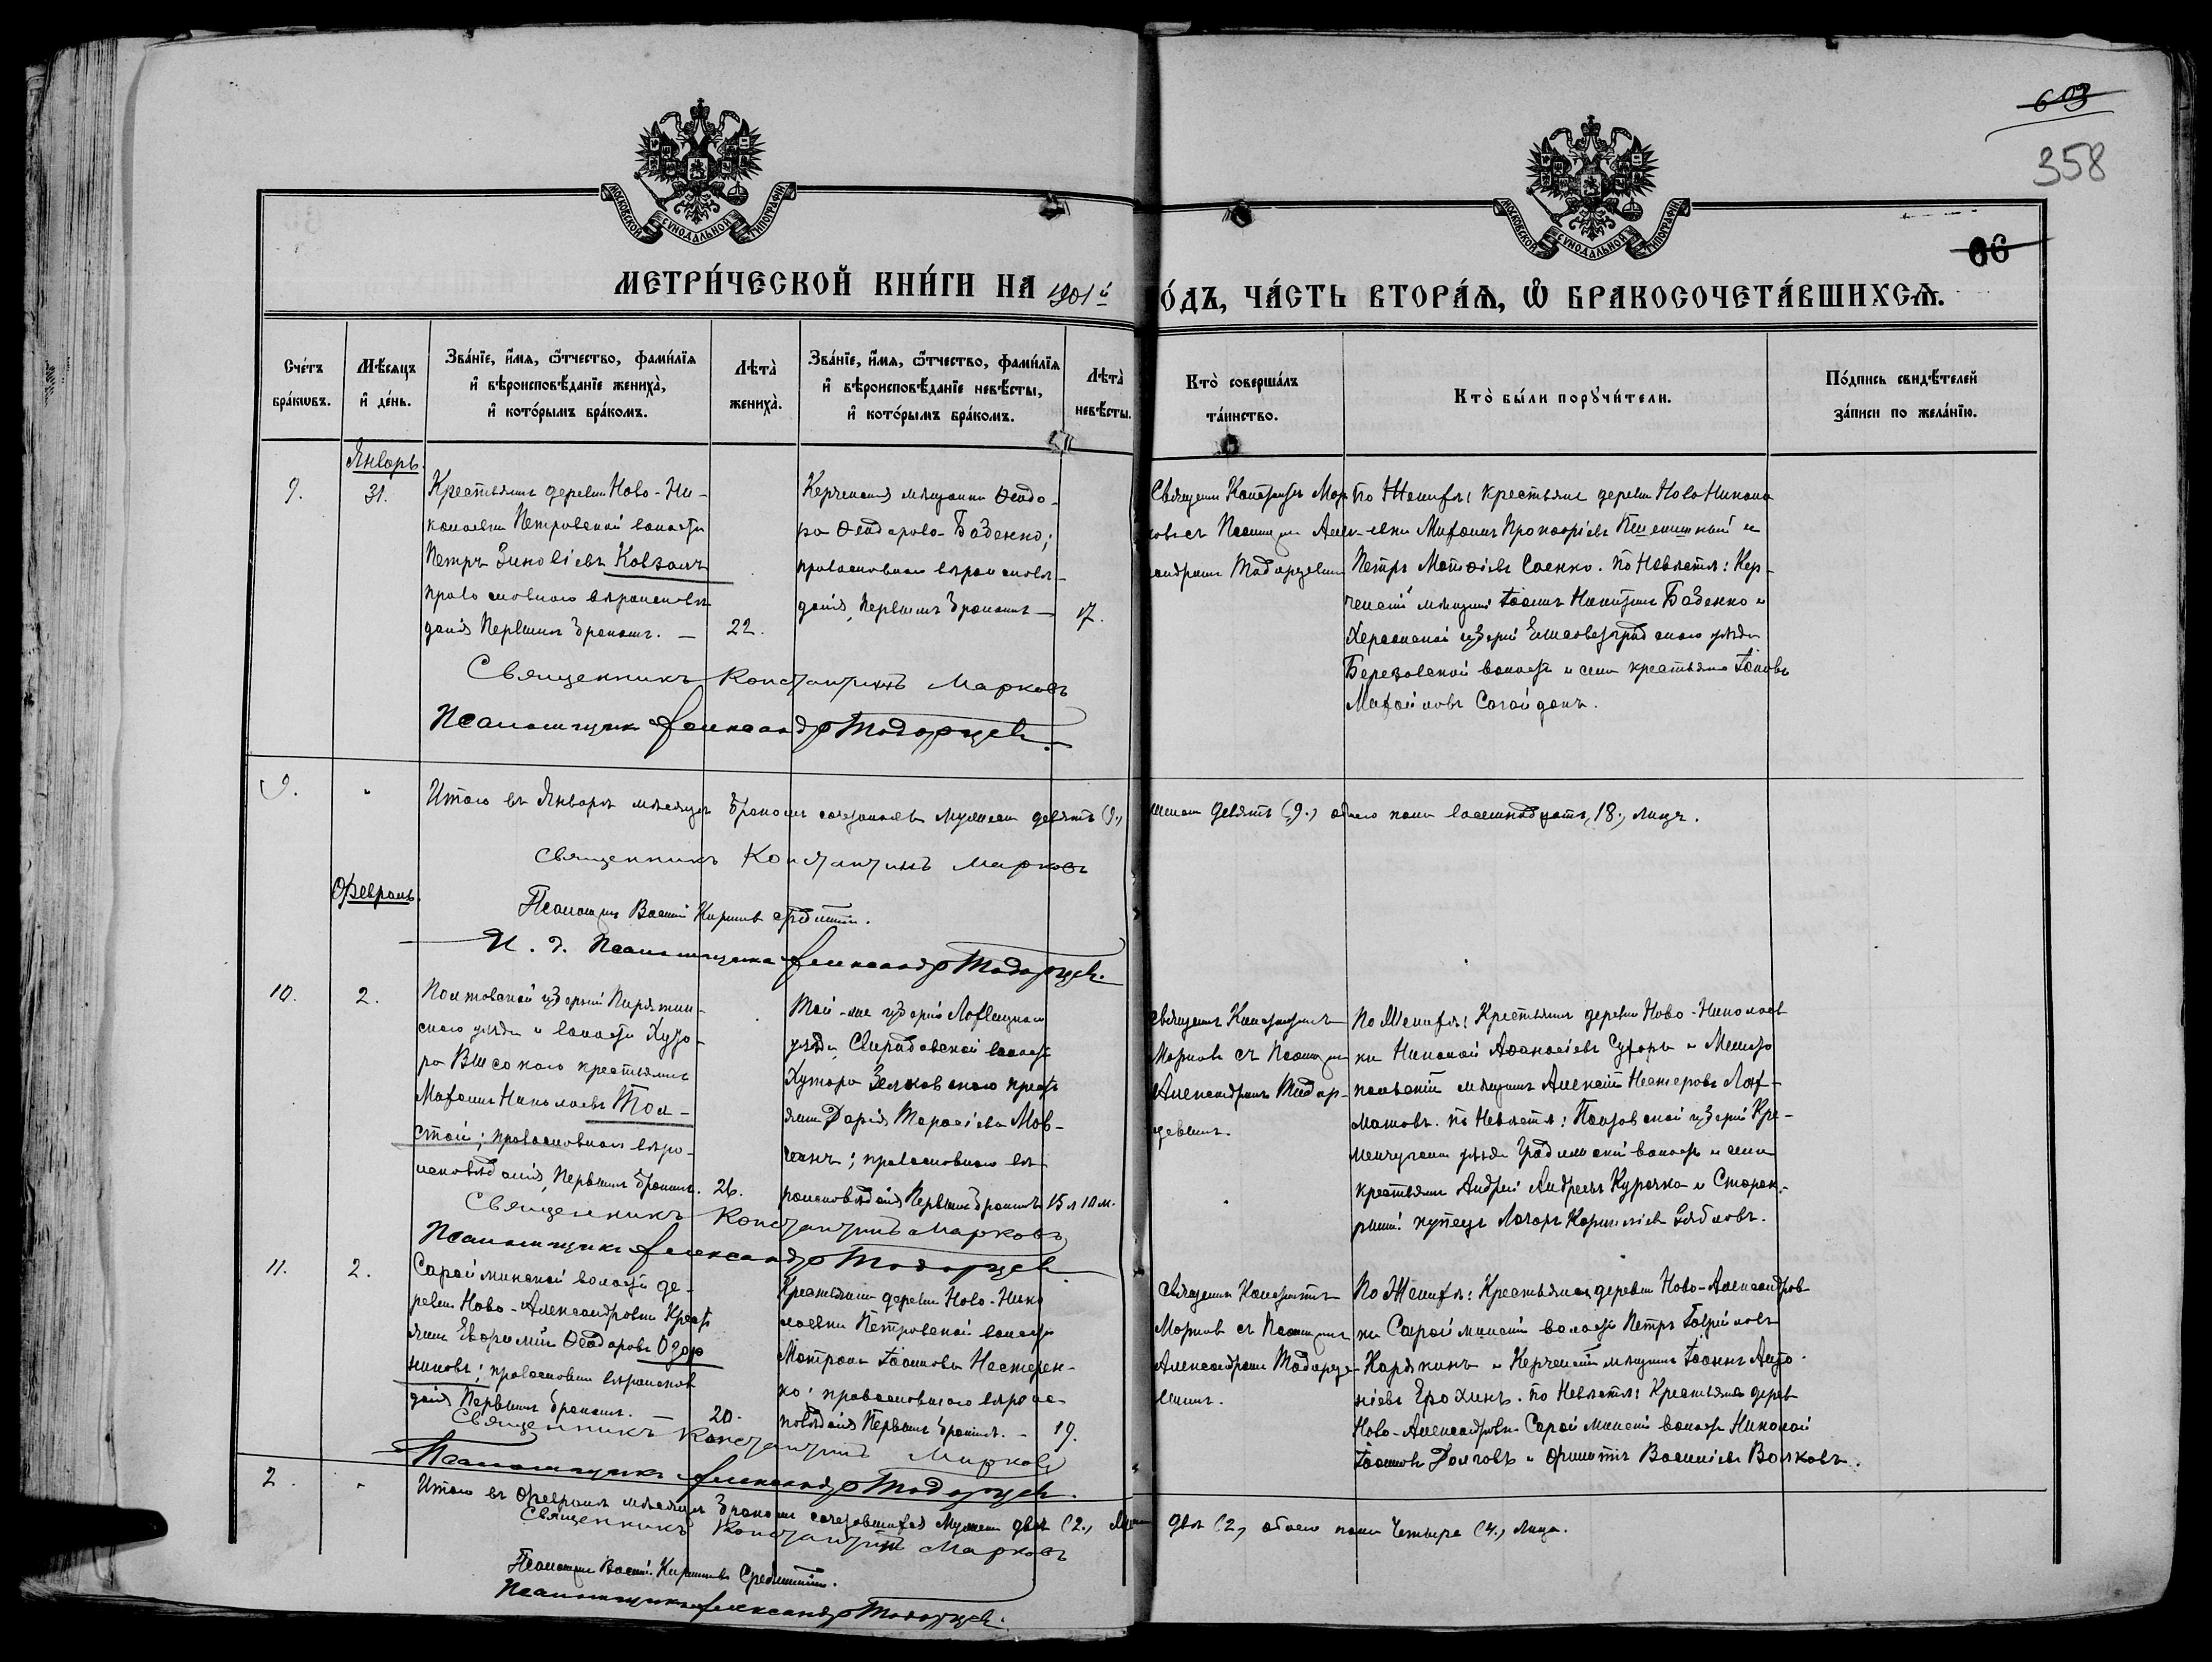 603
358
МОСКОВСКОЙ СУНОДАЛЬНОЙ ТИПОГРАФІИ
МОСКОВСКОЙ СУНОДАЛЬНОЙ ТИПОГРАФІИ
66
МЕТРИ́ЧЕСКОЙ КНИ́ГИ НА 1901й
О́ДЪ, ЧА́СТЬ ВТОРА́Я, Ѡ БРАКОСОЧЕТА́ВШИХСЯ.
Сче́тъ бра́кѡвъ.
Мѣ́сяцъ и де́нь.
Зва́нїе, и́мя, ѻ҆́тчество, фами́лїя
и вѣроисповѣ́данїе жениха̀,
и кото́рымъ бра́комъ.
Лѣта̀ жениха̀.
Зва́нїе, и́мя, ѻ҆́тчество, фами́лїя
и вѣроисповѣ́данїе невѣ́сты,
и кото́рымъ бра́комъ.
Лѣта̀ невѣ́сты.
Кто̀ соверша́лъ та́инство.
Кто̀ бы́ли порꙋчи́тели.
По́дпись свидѣ́телей за́писи по жела́нїю.
Январь.
9.
31.
Крестьянинъ деревни Ново-Ни-
колаевки Петровской волости
Петръ Зиновіевъ Ковзалъ
православнаго вѣроисповѣ
данія первымъ бракомъ. —
22.
Керченская мѣщанка Ѳеодо-
ра Ѳеодорова Бабенко;
православнаго вѣроисповѣ-
данія, первымъ бракомъ —
17.
Священ. Констант. Мар
ковъ съ Псаломщ. Алек-
сандромъ Тодорцевымъ
По Женихѣ: крестьяне деревни Ново Никола
евки Митрофанъ Прокофіевъ Пшеничный и
Петръ Матѳіевъ Саенко. По Невѣстѣ: Кер-
ченскій мѣщанинъ Іоаннъ Никитинъ Бабенко и
Херсонской губерніи Елисаветградскаго уѣзда
Березовской волости и села крестьянинъ Іаковъ
Сагайдакъ.
Священникъ Константинъ Марковъ
Псаломщикъ Александръ Тодорцевъ.
9.
"
Итого въ Январѣ мѣсяцѣ бракомъ сочеталось мужеска девять (9.)
женска девять (9.) обоего пола восемнадцать, 18., лицъ.
Священникъ Константинъ Марковъ
Февраль.
Псаломщ. Василій
И. д. Псаломщика Александръ Тодорцевъ.
10.
2.
Полтавской губерніи Пирятин-
скаго уѣзда и волости Хуто-
ра Высокаго крестьянинъ
Николаевъ Тол-
стой; православнаго вѣро-
исповѣданія, первымъ бракомъ.
26.
Той-же губерніи Лохвицкаго
уѣзда, Свиридовской волости
Хутора Зеяковскаго крест
янка Дарія Тарасіева Мов-
чанъ; православнаго вѣ
роисповѣданія первымъ бракомъ
15 л 10 м.
Священ. Константинъ
Марковъ съ Псаломщ
Александромъ Тодор-
цевымъ.
По Женихѣ: Крестьянинъ деревни Ново-Николаев
ки Николай Аѳанасіевъ и Мелито
польскій мѣщанинъ Алексій Нестеровъ
По Невѣстѣ: Полтавской губерніи Кре-
менчугскаго уѣзда Градижской волости и села
крестьянинъ Андрей Андреевъ Курочка и Старок-
рымскій купецъ Лазарь Корниліевъ
Священникъ Константинъ Марковъ
Псаломщикъ Александръ Тодорцевъ
11.
2.
Сарайминской волости де-
ревни Ново-Александровки Крест
янинъ Евфимій Ѳеодоровъ Огоро
никовъ; православнаго вѣроисповѣ
данія первымъ бракомъ. —
20.
Крестьянка деревни Ново-Нико
лаевки Петровской волости
Матрона Іоаннова Нестерен-
ко; православнаго вѣроис-
повѣданія первымъ бракомъ. —
19.
Священ. Константинъ
Марковъ съ Псаломщ.
Александромъ Тодорце-
вымъ.
По Женихѣ: Крестьянинъ деревни Ново-Александров
ки Сарайминской волости Петръ Гавриловъ
Карякинъ и Керченскій мѣщанинъ Іоаннъ Анто-
ніевъ Ерохинъ. По Невѣстѣ: Крестьяне дерев
Ново-Александровки Сарайминской волости Николай
Іоанновъ Долговъ и Филиппъ Василіевъ Волковъ.
Священникъ Константинъ Марковъ
Псаломщикъ Александръ Тодорцевъ.
2.
"
Итого въ Февралѣ мѣсяцѣ бракомъ сочетавшихся мужеска два (2.,
двѣ (2., обоего пола четыре (4., лица.
Священникъ Константинъ Марковъ
Псаломщ. Василій
Псаломщикъ Александръ Тодорцевъ.